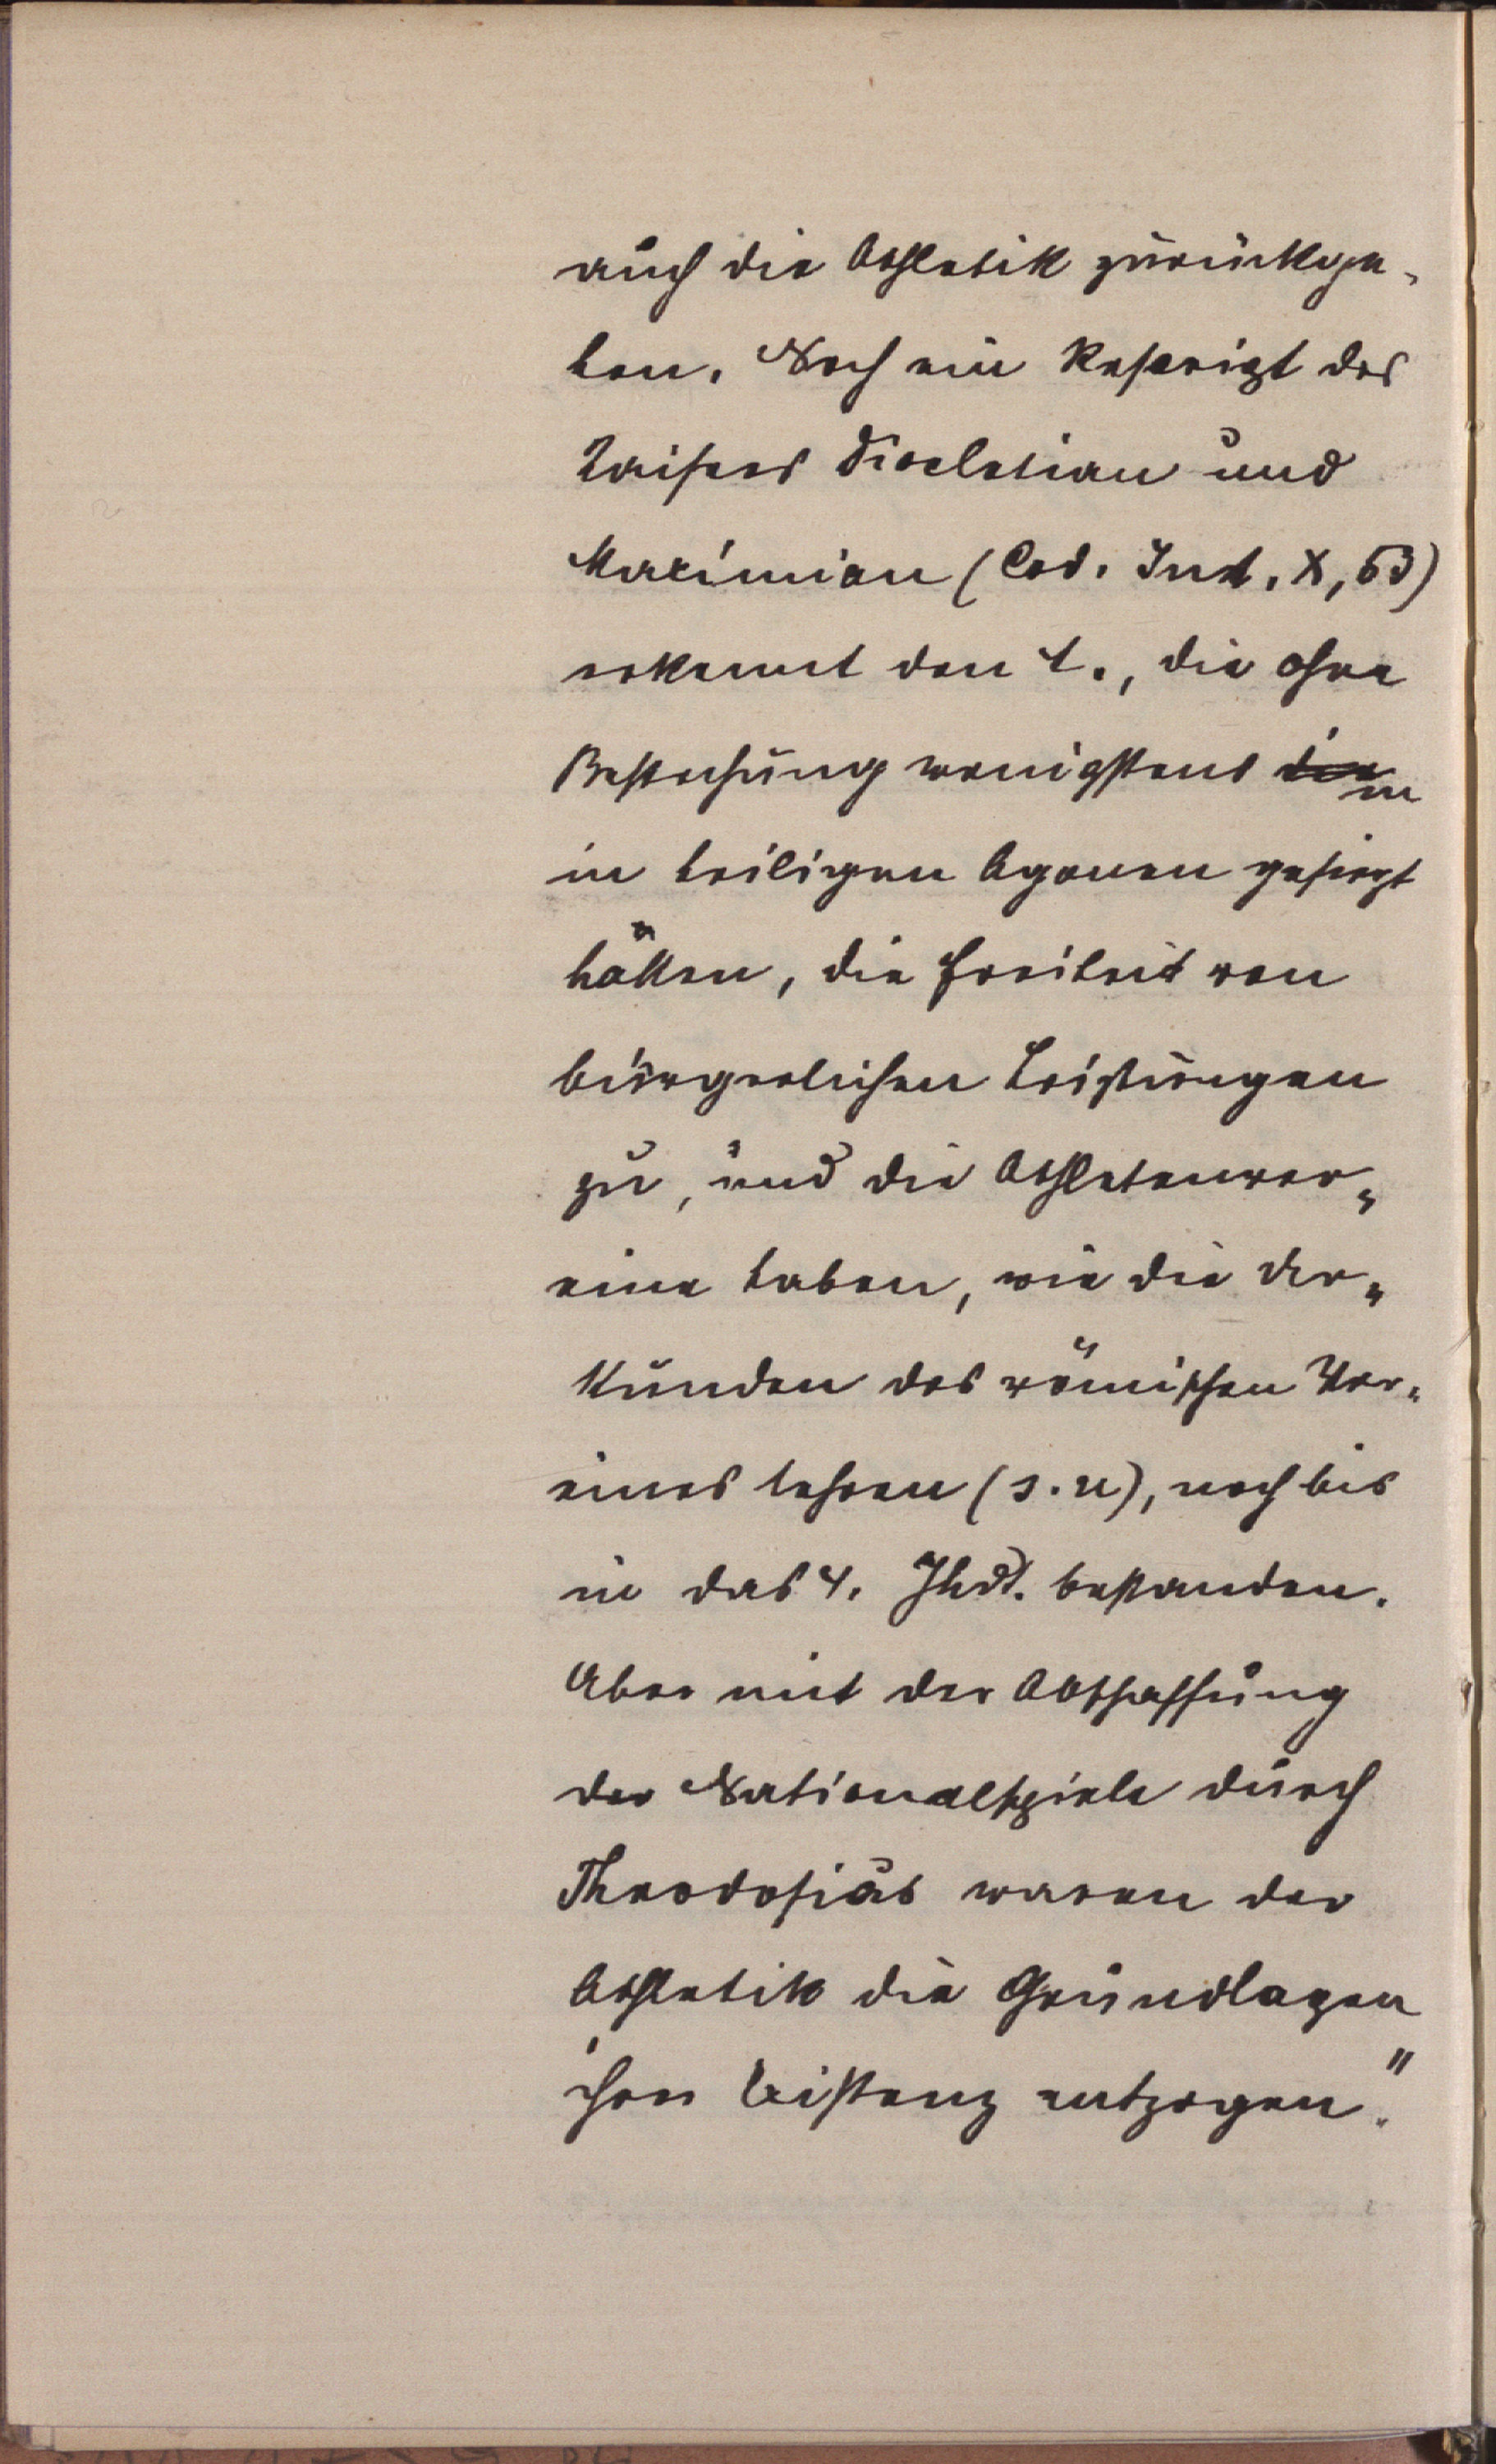 auch die Athletik zurückge-
hen. Noch ein Reskript des
Kaisers Diocletian und
Maximian (Cod. Just. X, 53)
erkennt den A., die ohne
Bestechung wenigstens
in heiligen Agonen gesiegt
hätten, die Freiheit von
bürgerlichen Leistungen
zu, und die Athletenver-
eine haben, wie die Ur-
kunden des römischen Ver-
eines lehren (s. u), noch bis
in das 4. Jhdt. bestanden.
Aber mit der Abschaffung
der Nationalspiele durch
Theodosius waren der
Athletik die Grundlagen
ihrer Existenz entzogen."